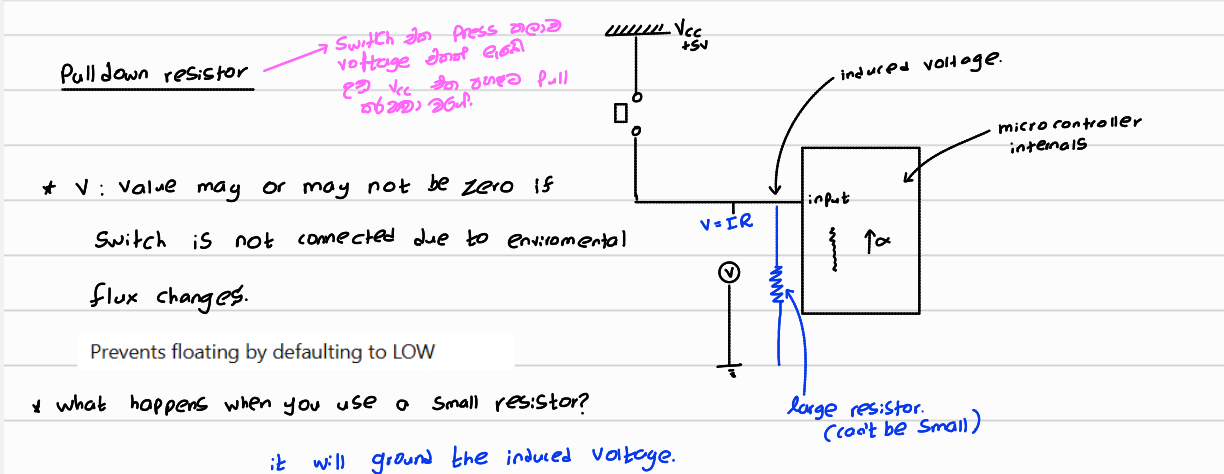 Pull down resistor
Switch එක Press කලාම
voltage එකක්
Vcc එක පහලට Pull
Vcc
+5V
induced voltage.
microcontroller
internals
input
V = IR
V
∝
* V : Value may or may not be zero if
Switch is not connected due to enviromental
flux changes.
Prevents floating by defaulting to LOW
* what happens when you use a small resistor?
large resistor.
(can't be small)
it will ground the induced voltage.